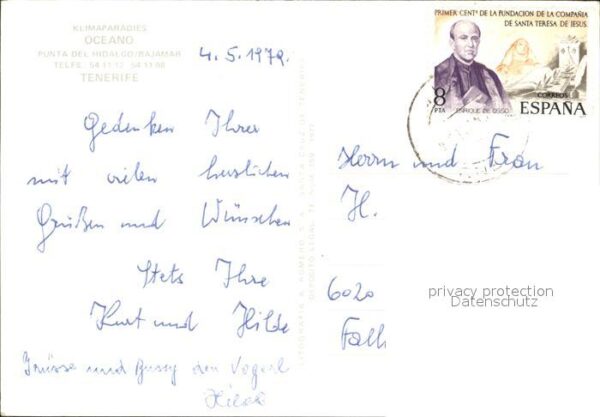 KLIMAPARADIES
OCEANO
PUNTA DEL HIDALGO/BAJAMAR
TELFS. 54 11 12 - 54 11 08
TENERIFE
4. 5. 1979.
Gedenken Ihrer
mit vielen herzlichen
Grüßen und Wünschen
Stets Ihre
Kurt und Hilde
Grüsse und Bussy den Vogerl
Hilde
LITOGRAFIA A. ROMERO, S. A. SANTA CRUZ DE TENERIFE
DEPOSITO LEGAL TF. 1977
PRIMER CENTº DE LA FUNDACION DE LA COMPAÑIA
DE SANTA TERESA DE JESUS
8
PTA
ENRIQUE DE OSSO
CORREOS
ESPAÑA
Herrn und Frau
H.
6020
privacy protection
Datenschutz